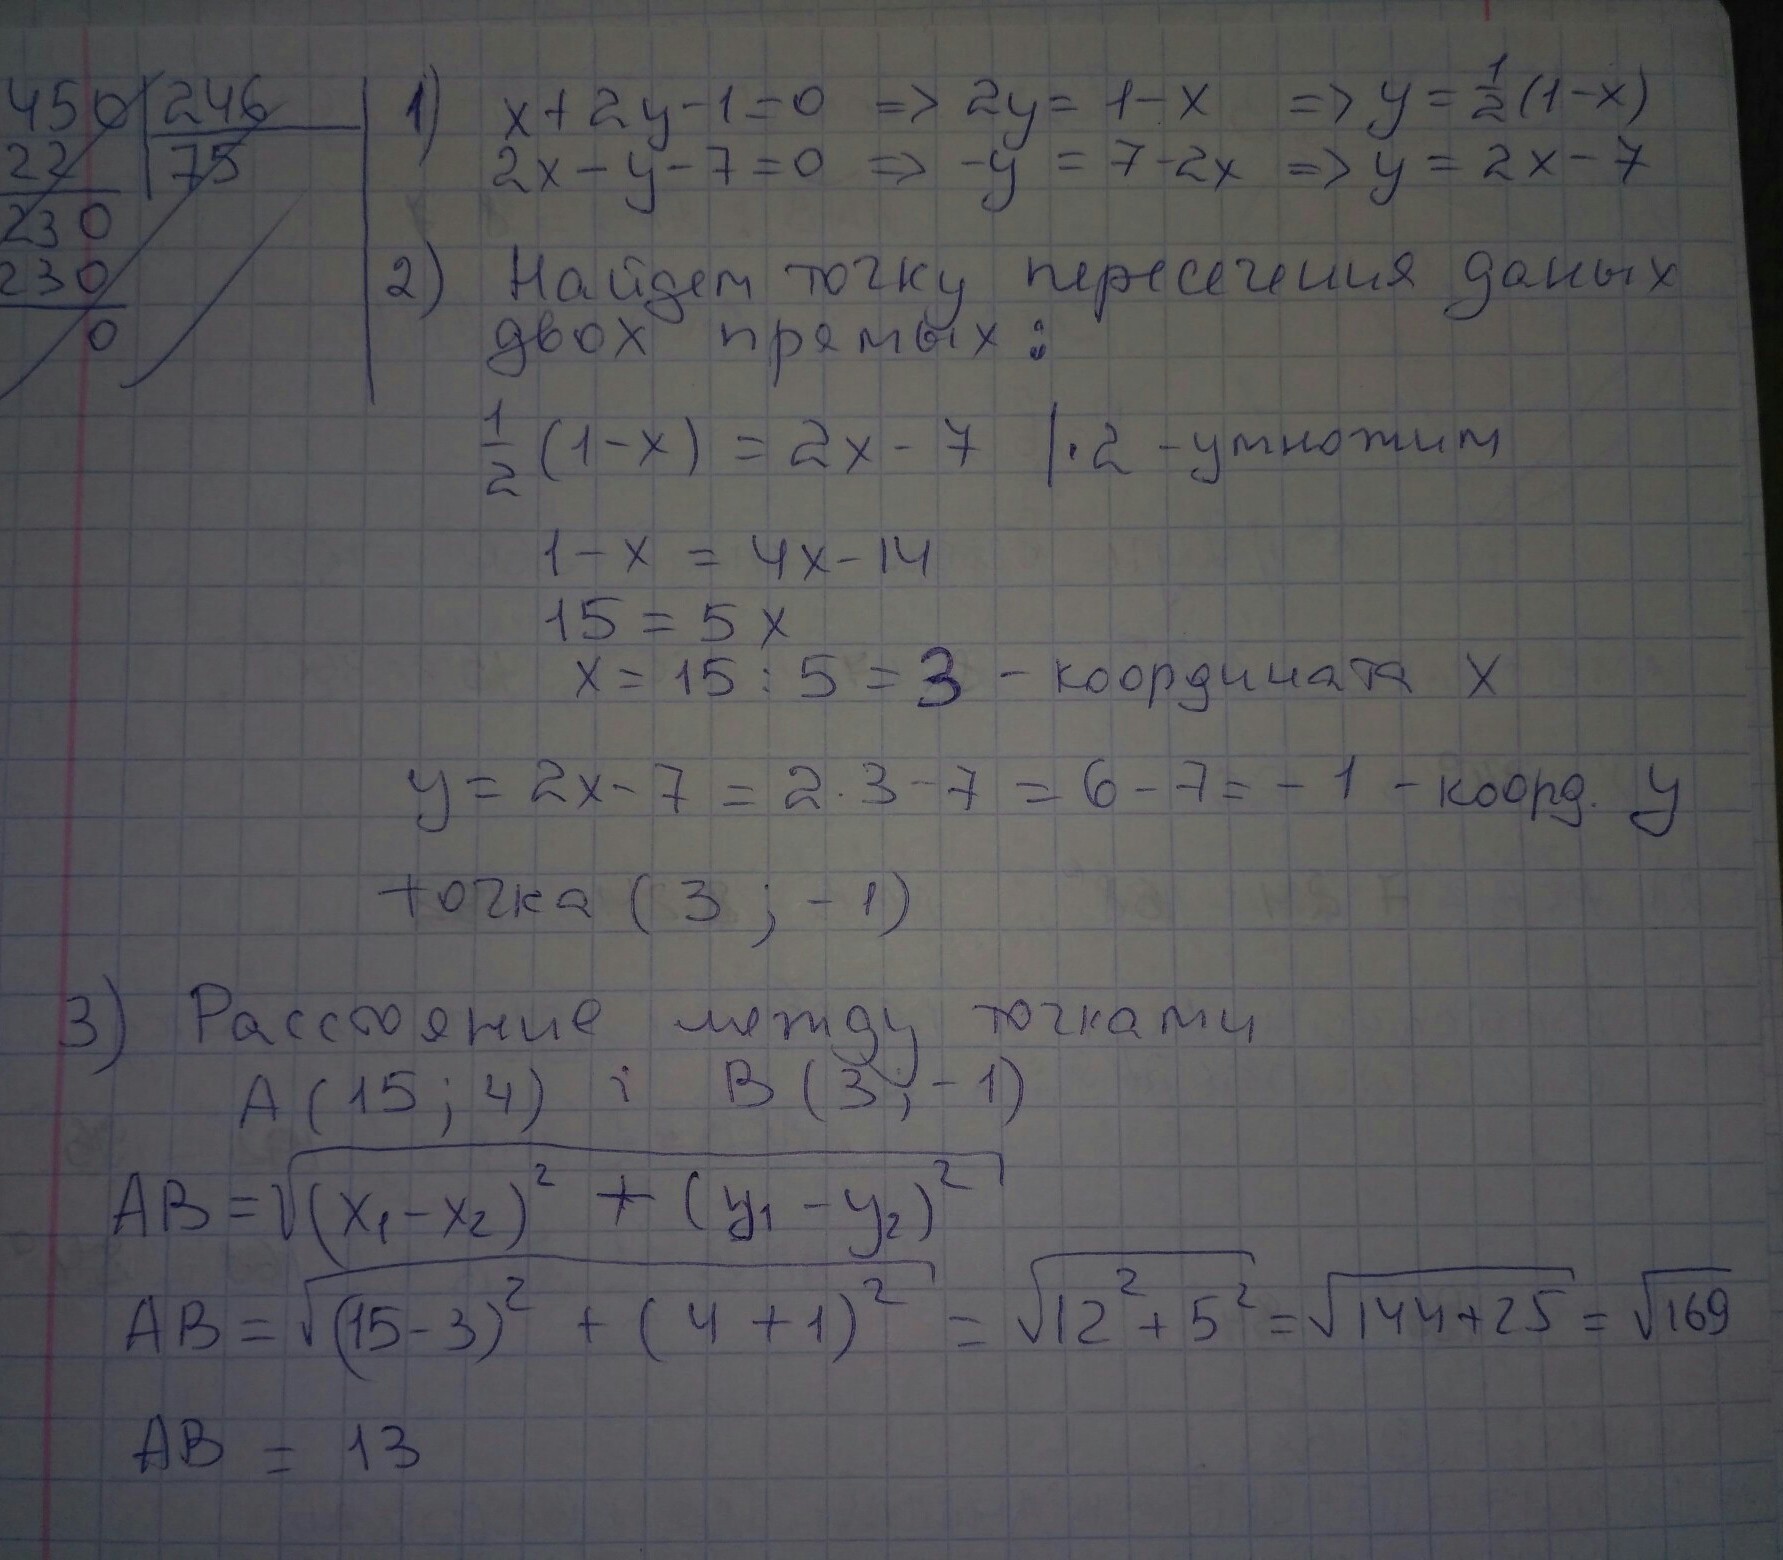 450 246
22 75
230
230
0
1) x+2y-1=0 => 2y = 1-x => y = 1/2 (1-x)
2x-y-7=0 => -y = 7-2x => y = 2x-7
2) Найдем точку пересечения даных
двох прямых:
1/2 (1-x) = 2x-7 |·2 -умножим
1-x = 4x-14
15 = 5x
x = 15:5 = 3 - координата x
y = 2x-7 = 2·3-7 = 6-7 = -1 - коорд. y
точка (3; -1)
3) Расстояние между точками
A (15; 4) і B (3; -1)
AB = √((x₁-x₂)² + (y₁-y₂)²)
AB = √((15-3)² + (4+1)²) = √(12²+5²) = √(144+25) = √169
AB = 13